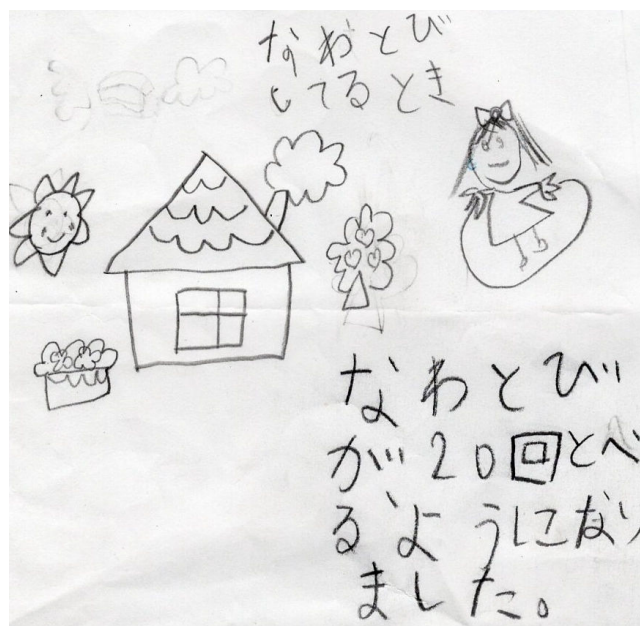 なわとび
してるとき
なわとび
が20回とべ
るようになり
ました。